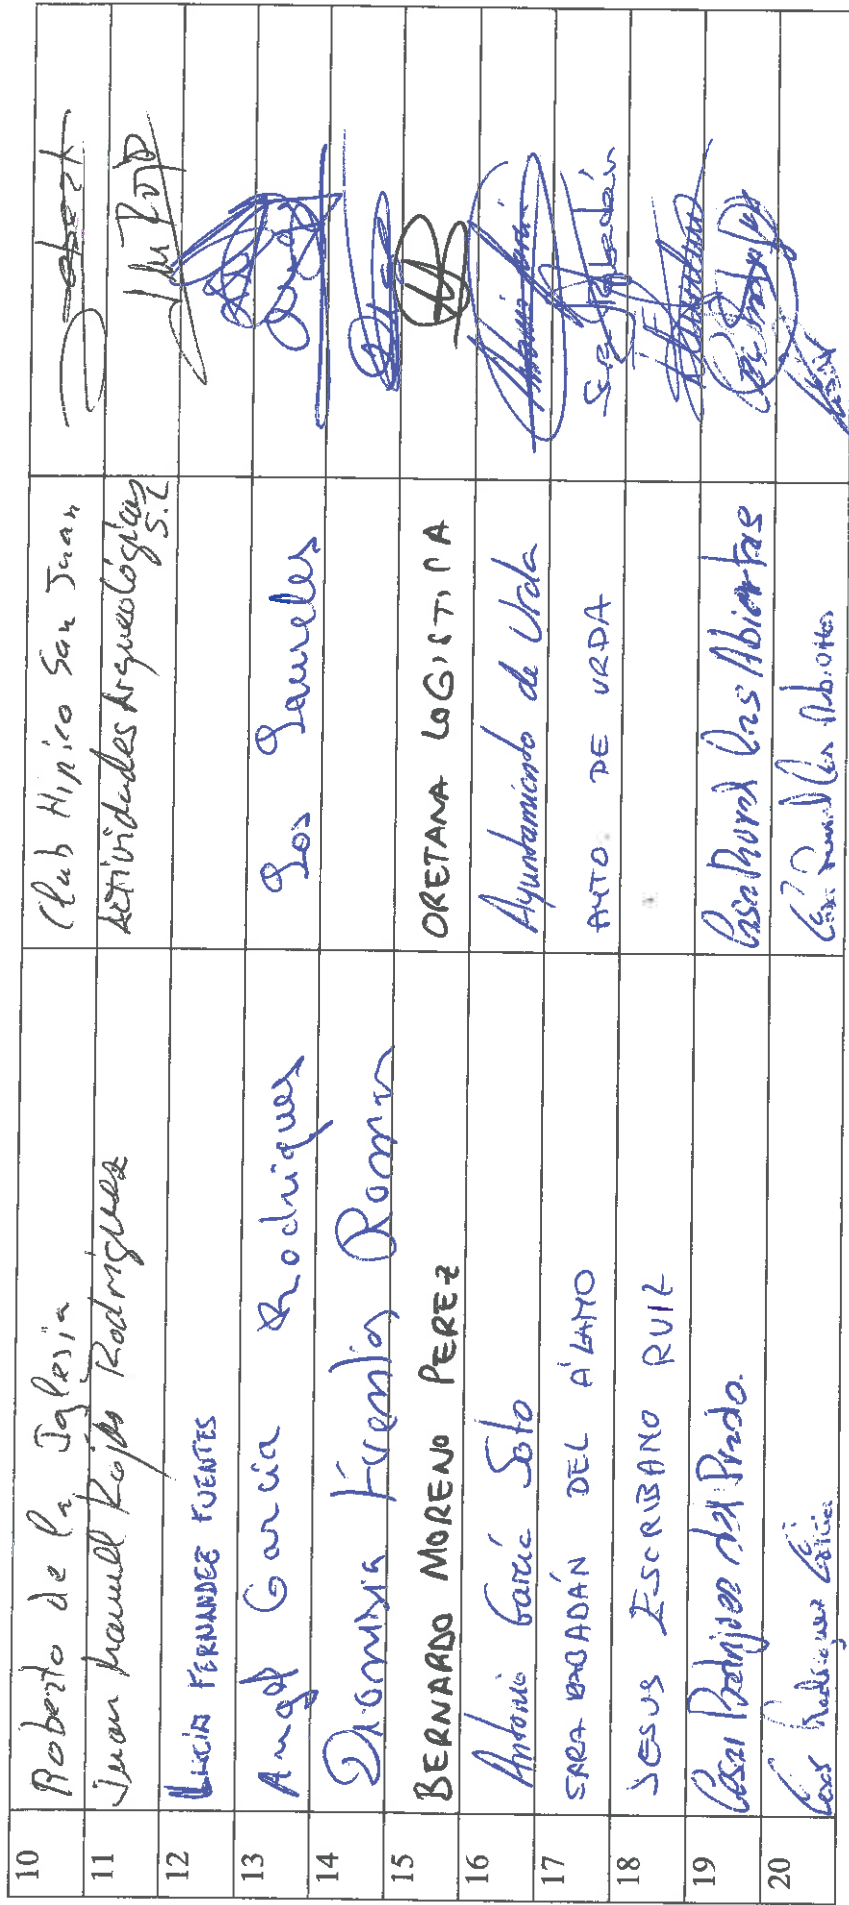 10 Roberto de la Iglesia Club Hípico San Juan Robert
11 Juan Manuel Rojas Rodríguez Actividades Arqueológicas S.L JM Rojas
12 LUCÍA FERNANDEZ FUENTES
13 Angel Garcia Rodrigues Los Laureles
14 Dionisia Fuentes Romer
15 BERNARDO MORENO PEREZ ORETANA LOGISTICA
16 Antonio García Soto Ayuntamiento de Urda Antonio García
17 SARA RABADÁN DEL ÁLAMO AYTO. DE URDA Sara Rabadán
18 JESUS ESCRIBANO RUIZ
19 Cesar Rodriguez del Prado. Casa Rural Las Abiertas
20 Rodriguez Casa Rural Las Abiertas